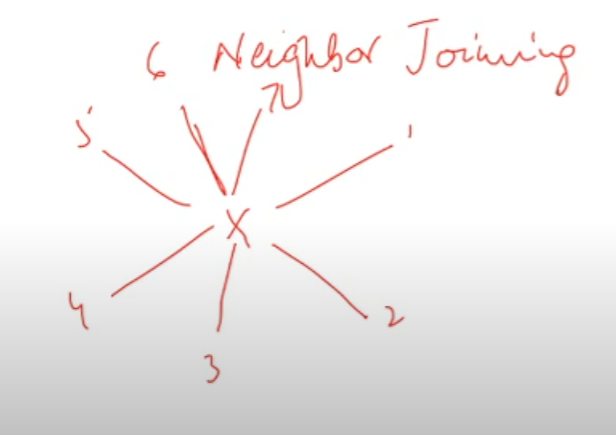 6 Neighbor Joining
5
1
X
4
2
3